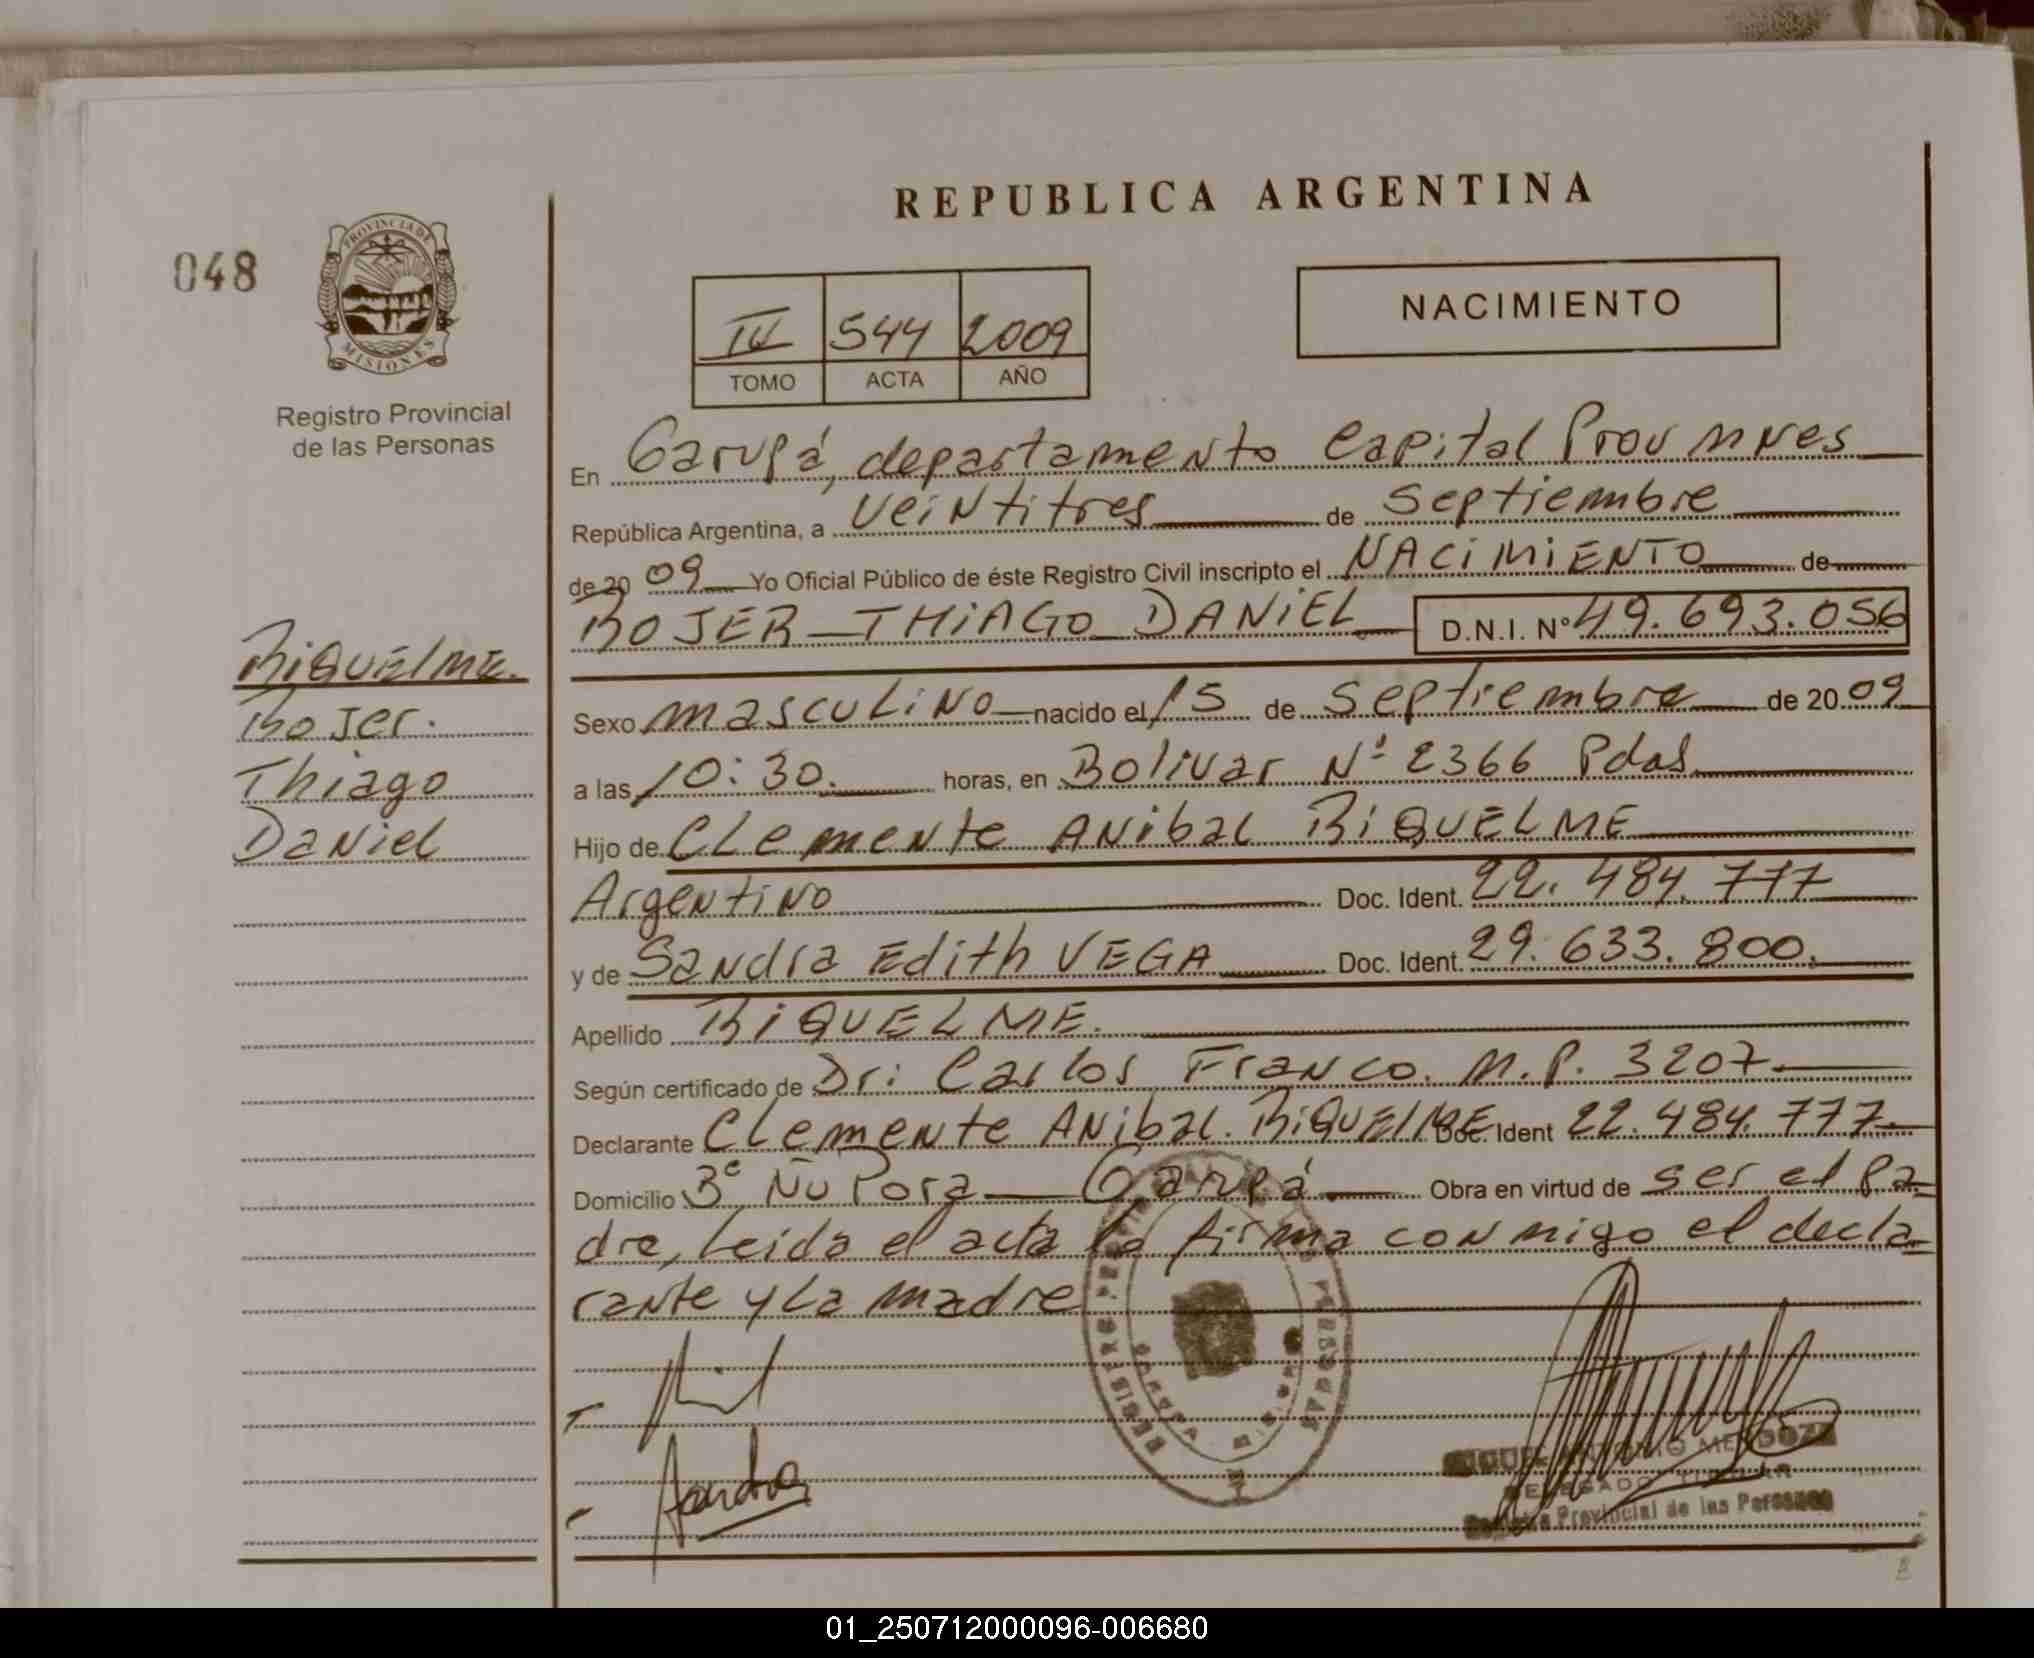 REPUBLICA ARGENTINA
048
PROVINCIA DE
MISIONES
Registro Provincial
de las Personas
IV 544 2009
TOMO ACTA AÑO
NACIMIENTO
En Garupá, departamento Capital Prov Mnes
República Argentina, a veintitres de septiembre
de 20 09 Yo Oficial Público de éste Registro Civil inscripto el NACIMIENTO de
ROJER THIAGO DANIEL D.N.I. Nº 49.693.056
Riquelme.
Rojer.
Thiago
Daniel
Sexo masculino nacido el 15 de septiembre de 20 09
a las 10:30. horas, en Bolivar Nº 2366 Pdas
Hijo de Clemente Anibal RIQUELME
Argentino Doc. Ident. 22.484.777
y de Sandra Edith VEGA Doc. Ident. 29.633.800.
Apellido RIQUELME.
Según certificado de Dr: Carlos Franco. M.P. 3207.
Declarante Clemente Anibal. RIQUELME Doc. Ident 22.484.777.
Domicilio 3º Ñu Pora Garupá Obra en virtud de ser el pa=
dre, leida el acta la firma conmigo el decla=
rante y la madre
REGISTRO PROVINCIAL PERSONAS
Sandra
MIGUEL ANTONIO MENDOZA
DELEGADO TITULAR
Registro Provincial de las Personas
01_250712000096-006680